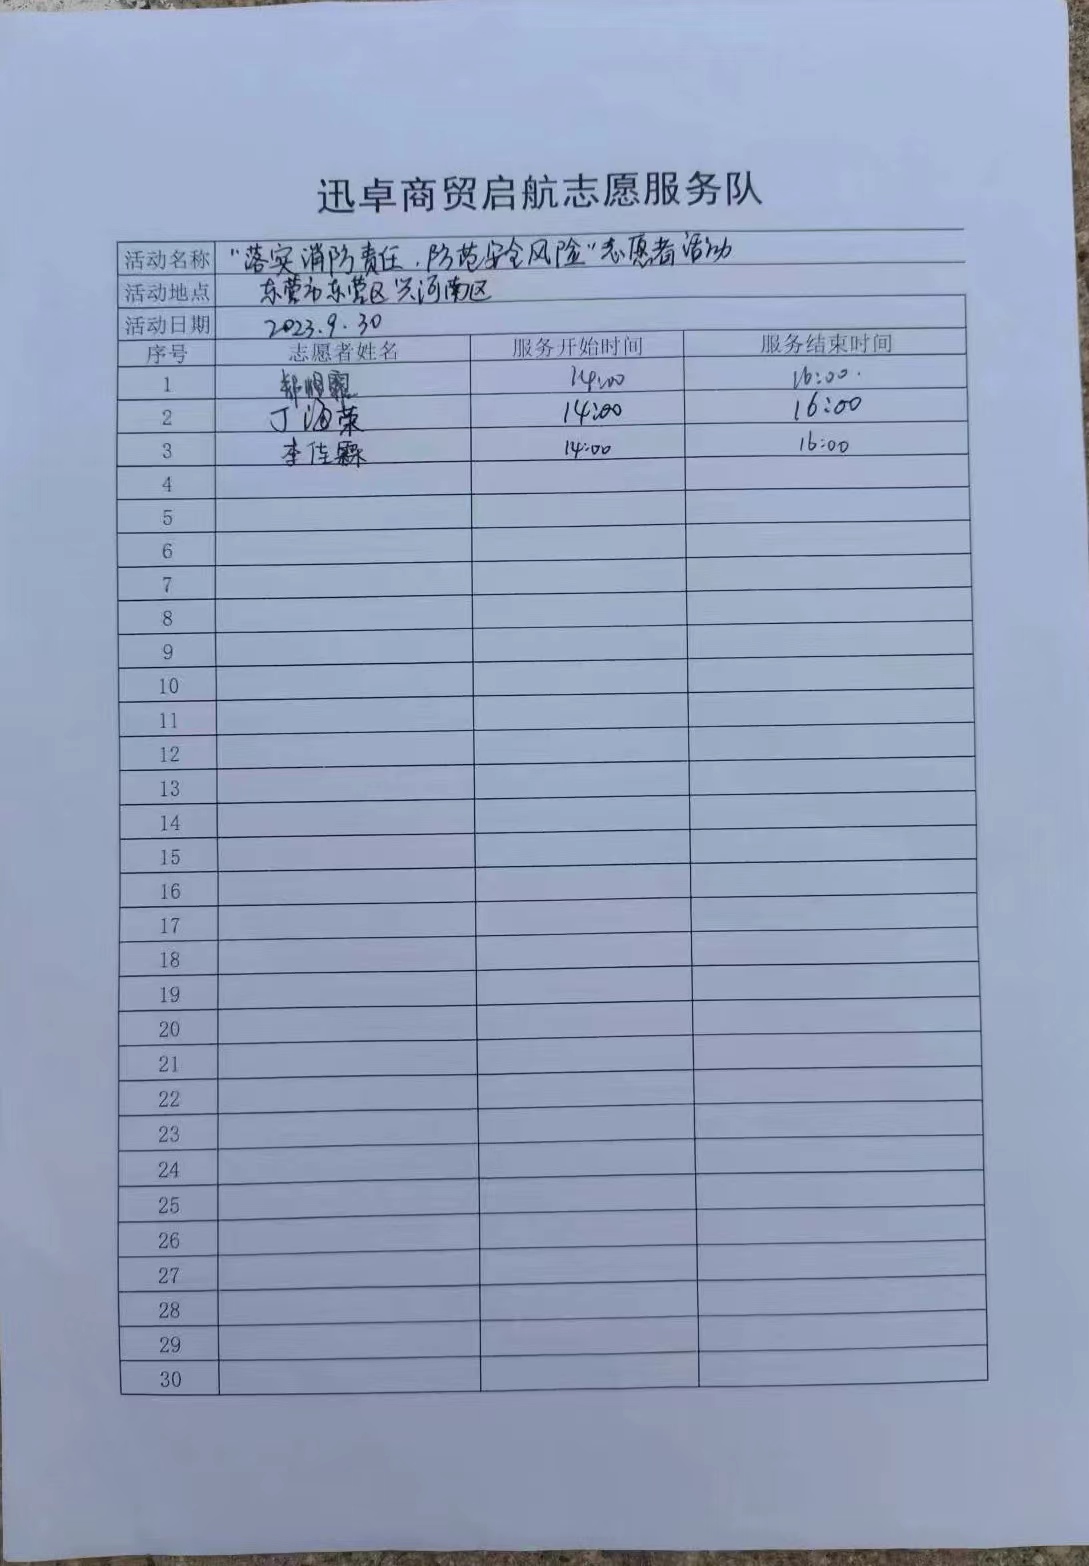 迅卓商贸启航志愿服务队
活动名称 "落实消防责任，防范安全风险"志愿者活动
活动地点 东营市东营区兴河南区
活动日期 2023.9.30
序号 志愿者姓名 服务开始时间 服务结束时间
1 14:00 16:00.
2 丁海荣 14:00 16:00
3 李佳霖 14:00 16:00
4
5
6
7
8
9
10
11
12
13
14
15
16
17
18
19
20
21
22
23
24
25
26
27
28
29
30